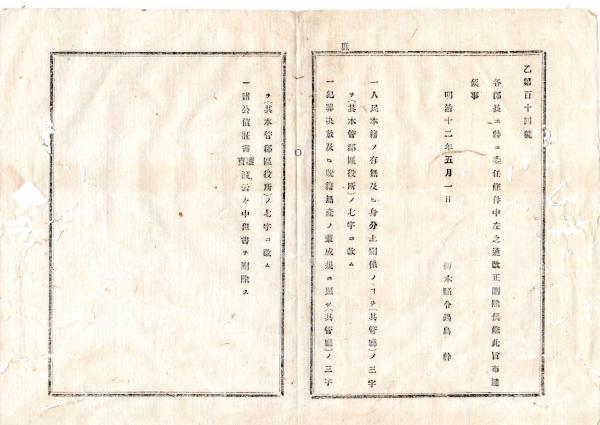 乙第百十四號
各郡長ヱ特ニ委任條件中左之通改正刪除候條此旨布達
候事
明治十二年五月一日　　栃木縣令鍋島　幹
一人民本籍ノ有無及ヒ身分上關係ノヿヲ(其管廳)ノ三字
ヲ(其本管郡區役所)ノ七字ニ改ム
一犯罪决放及ヒ
ノ三字
ヲ(其本管郡區役所)ノ七字ニ改ム
一諸公債証書
云々中但書ヲ刪除ス